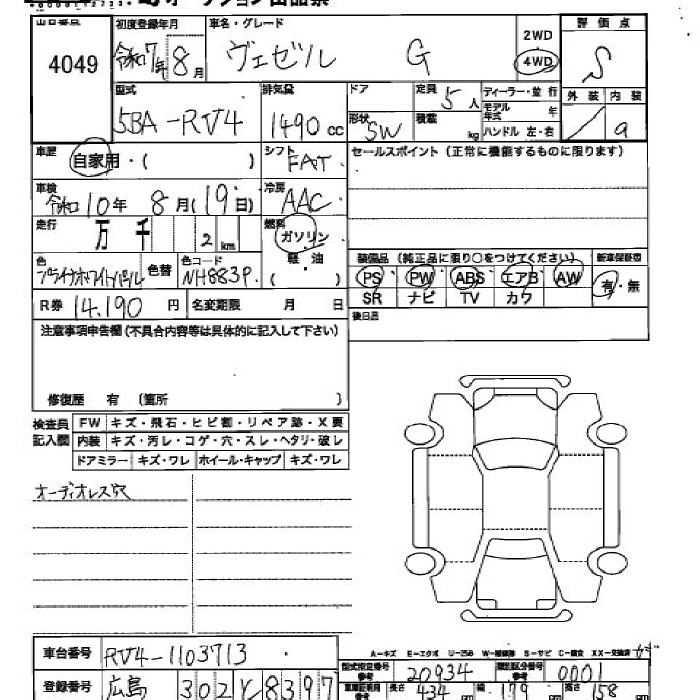 出品番号 4049
初度登録年月 令和7年8月
車名・グレード ヴェゼル G
2WD
4WD
評価点 S
外装 内装 a
型式 5BA-RV4
排気量 1490 CC
ドア
形状 5W
定員 5人
積載 kg
ディーラー・並行
モデル年式 年
ハンドル 左・右
車歴 自家用・( )
シフト FAT
セールスポイント (正常に機能するものに限ります)
車検 令和10年8月(19日)
冷房 AAC
走行 万 千 2 km
燃料 ガソリン
軽・油
( )
色 プラチナホワイトパール
色替
色コード NH883P
装備品 (純正品に限り○をつけてください)
新車保証書 有・無
PS PW ABS エアB AW
SR ナビ TV カワ
R券 14,190 円
名変期限 月 日
後日品
注意事項申告欄(不具合内容等は具体的に記入して下さい)
修復歴 有 (箇所 )
検査員記入欄
FW キズ・飛石・ヒビ割・リペア跡・X要
内装 キズ・汚レ・コゲ・穴・スレ・ヘタリ・破レ
ドアミラー キズ・ワレ ホイール・キャップ キズ・ワレ
オーディオレス穴
A-キズ E-エクボ U-凹み W-補修跡 S-サビ C-腐食 XX-交換済
車台番号 RV4-1103713
型式指定番号 参考 20934
類別区分番号 参考 0001
登録番号 広島 302 8397
車庫証明用 参考 長さ 434 cm 幅 179 cm 高さ 158 cm